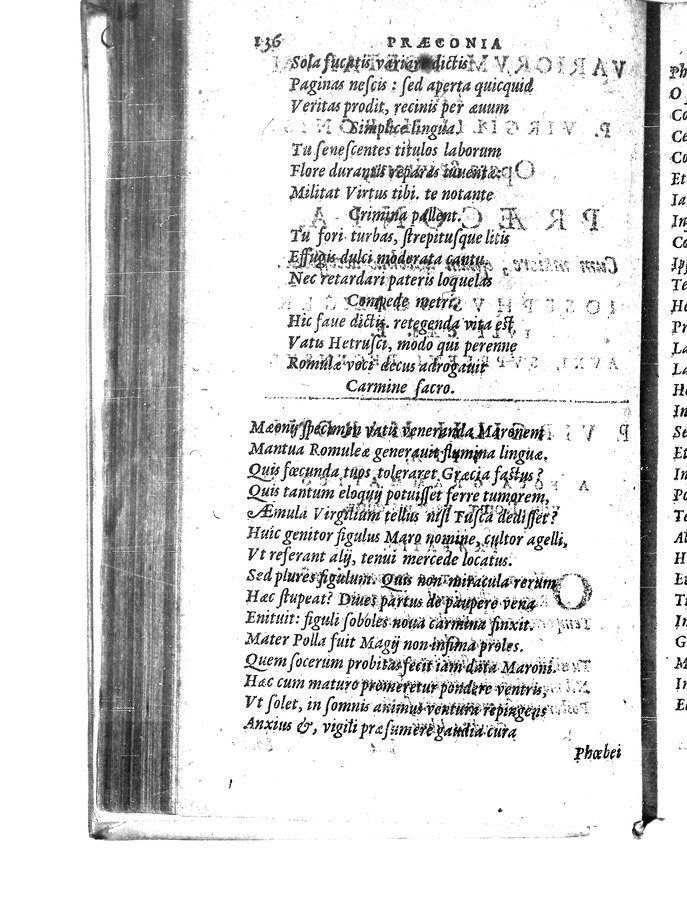 136 PRÆCONIA
Sola fucatis variare dictis
Paginas nescis : sed aperta quicquid
Veritas prodit, recinis per æuum
Simplice lingua.
Tu senescentes titulos laborum
Flore durantis reparas iuuentæ:
Militat Virtus tibi. te notante
Crimina pallent.
Tu fori turbas, strepitusque litis
Effugis dulci moderata cantu,
Nec retardari pateris loquelas
Compede metri.
Hic faue dictis. retegenda vita est
Vatis Hetrusci, modo qui perenne
Romulæ voci decus adrogauit
Carmine sacro.
Mæonij specimen vatis veneranda Maronem
Mantua Romuleæ generauit flumina linguæ.
Quis fœcunda tuos toleraret Græcia fastus?
Quis tantum eloquij potuisset ferre tumorem,
Æmula Virgilium tellus nisi Tusca dedisset?
Huic genitor figulus Maro nomine, cultor agelli,
Vt referant alij, tenui mercede locatus.
Sed plures figulum. Quis non miracula rerum
Hæc stupeat? Diues partus de paupere vena
Enituit: figuli soboles noua carmina finxit.
Mater Polla fuit Magij non infima proles.
Quem socerum probitas fecit iam data Maroni.
Hæc cum maturo promeretur pondere ventris,
Vt solet, in somnis animus ventura repingens
Anxius &, vigili præsumere gaudia cura
Phœbei